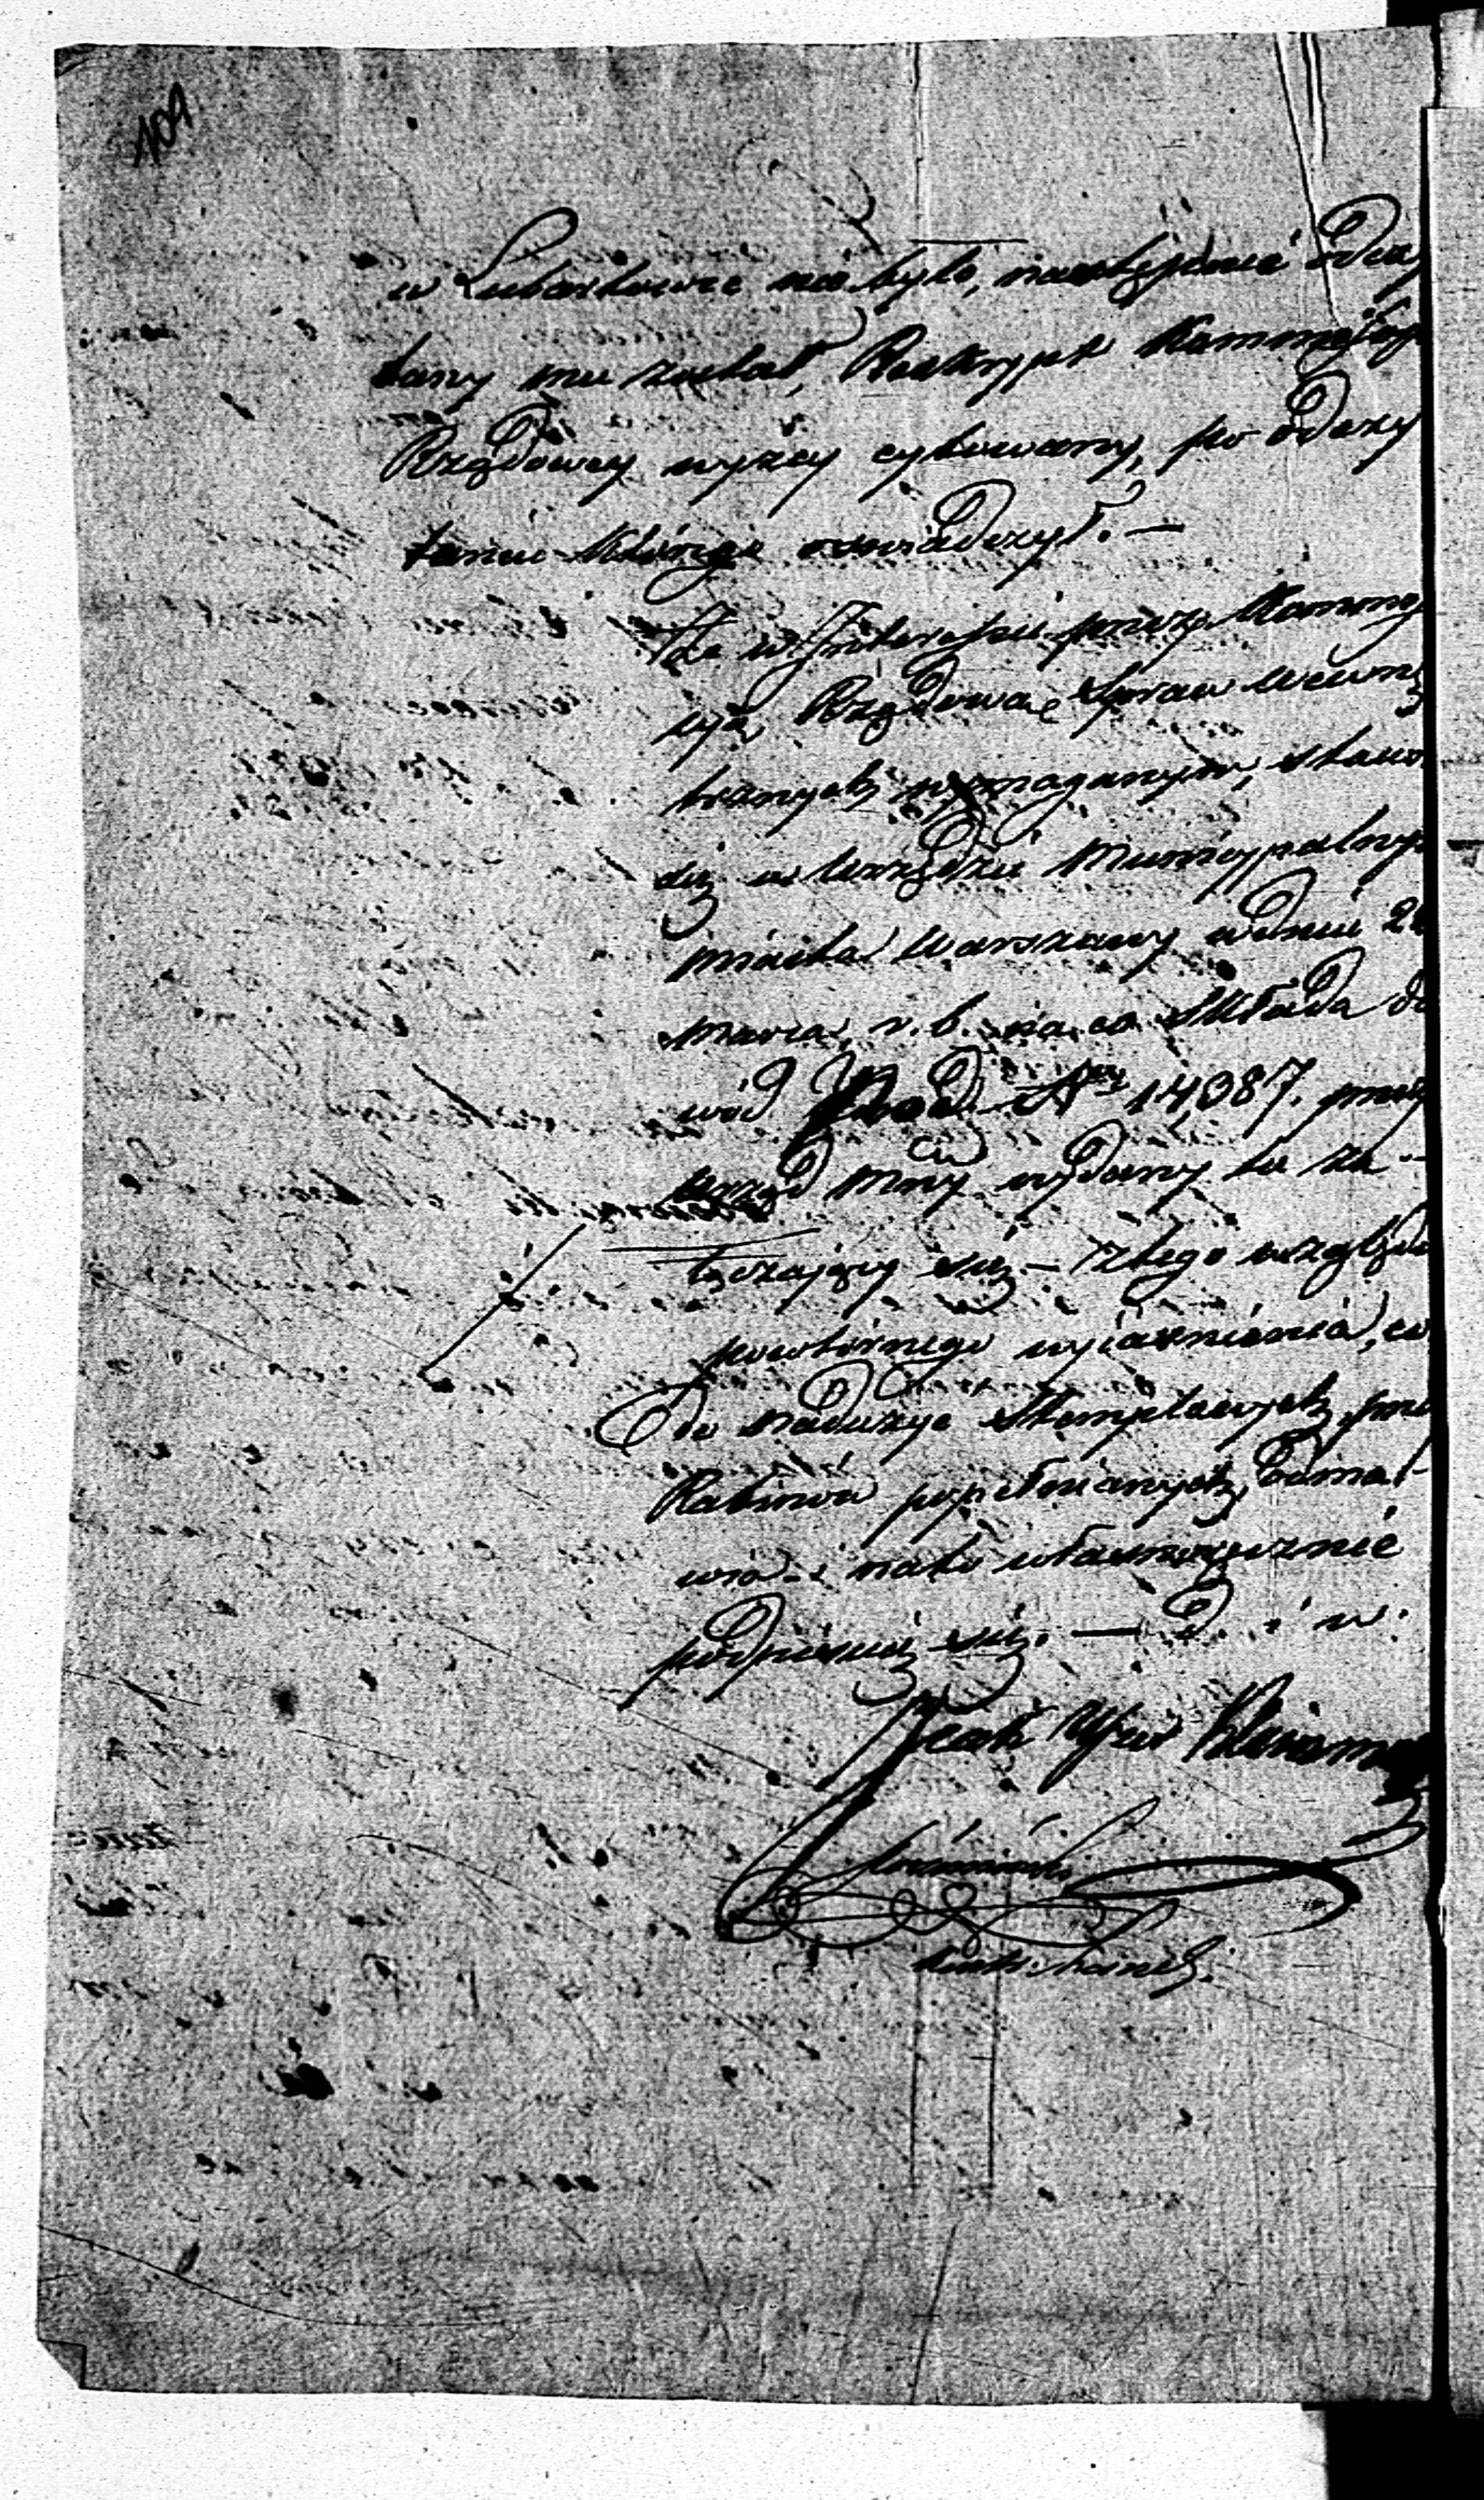 109
w Lubartowie nie było, następnie odczy
tany mu został, Reskrypt Kommissyi
Rządowey wyżey cytowany, po odczy
taniu którego oswiadczył. —
Że w Interesie przez Kommis
syą Rządową Spraw Wewnę
trznych wymaganym, stawił
się w Urzędzie Municypalnym
miasta Warszawy w dniu 2
marca, r. b. na co składa do
wód Pod Nrm 14,387. przez
Urząd Mny wydany tu za-
łączający się — Z tego względu
powtórnego wyiaśnienia, co
do nadużyć Stemplowych, przez
Rabinów popełnianych, odma-
wia i na to własnoręcznie
podpisuię się. — D. i w.